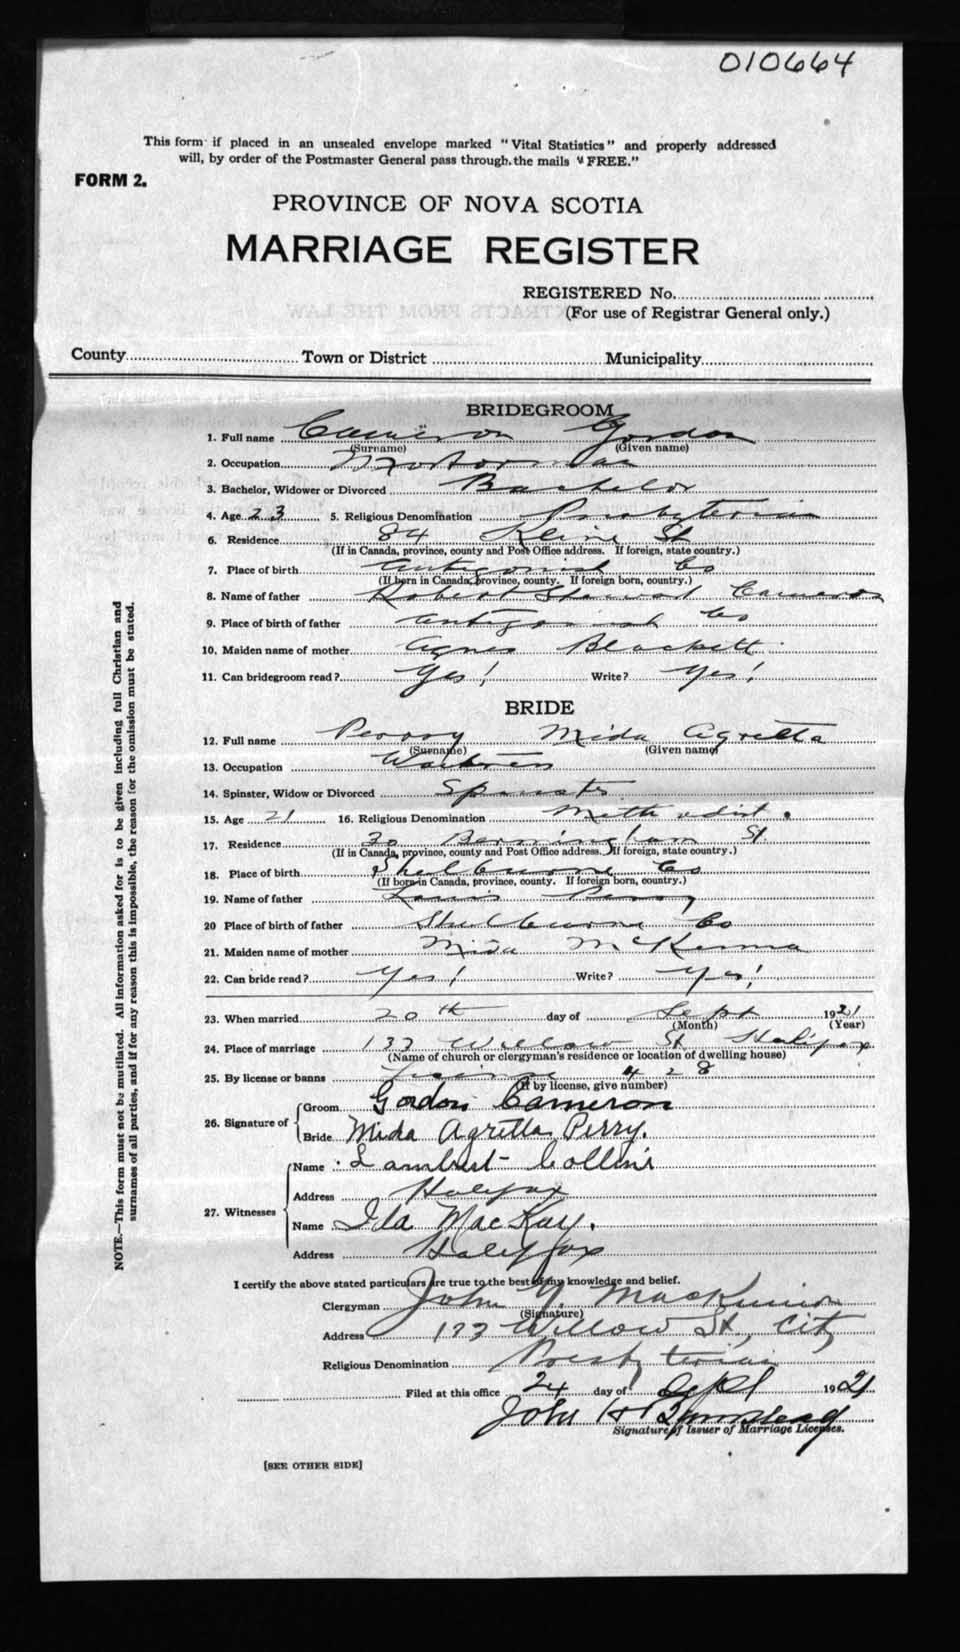 010664
This form if placed in an unsealed envelope marked "Vital Statistics" and properly addressed
will, by order of the Postmaster General pass through the mails "FREE."
FORM 2.
PROVINCE OF NOVA SCOTIA
MARRIAGE REGISTER
REGISTERED No.
(For use of Registrar General only.)
County Town or District Municipality
BRIDEGROOM
1. Full name Cameron Gordon
(Surname) (Given name)
2. Occupation Motorman
3. Bachelor, Widower or Divorced Bachelor
4. Age 23 5. Religious Denomination Presbyterian
6. Residence 84 Kline St
(If in Canada, province, county and Post Office address. If foreign, state country.)
7. Place of birth Antigonish Co
(If born in Canada, province, county. If foreign born, country.)
8. Name of father Robert Stewart Cameron
9. Place of birth of father Antigonish Co
10. Maiden name of mother Agnes Blackett
11. Can bridegroom read? Yes! Write? Yes!
BRIDE
12. Full name Perry Mida Agretta
(Surname) (Given name)
13. Occupation Waitress
14. Spinster, Widow or Divorced Spinster
15. Age 21 16. Religious Denomination Methodist.
17. Residence 30 Bermingham St.
(If in Canada, province, county and Post Office address. If foreign, state country.)
18. Place of birth Shelburne Co
(If born in Canada, province, county. If foreign born, country.)
19. Name of father Louis Perry
20 Place of birth of father Shelburne Co
21. Maiden name of mother Mida McKenna
22. Can bride read? Yes! Write? Yes!
23. When married 20th day of Sept 1921
(Month) (Year)
24. Place of marriage Willow St Halifax
(Name of church or clergyman's residence or location of dwelling house)
25. By license or banns License 428
(If by license, give number)
26. Signature of Groom Gordon Cameron
Bride Mida Agretta Perry.
27. Witnesses Name Lambert Collins
Address Halifax
Name Ida MacKay.
Address Halifax
I certify the above stated particulars are true to the best of my knowledge and belief.
Clergyman John MacKinnon
(Signature)
Address Willow St, City
Religious Denomination Presbyterian
Filed at this office 24 day of Sept 1921
John H
Signature of Issuer of Marriage Licenses.
[SEE OTHER SIDE]
NOTE.—This form must not be mutilated. All information asked for is to be given including full Christian and
surnames of all parties, and if for any reason this is impossible, the reason for the omission must be stated.